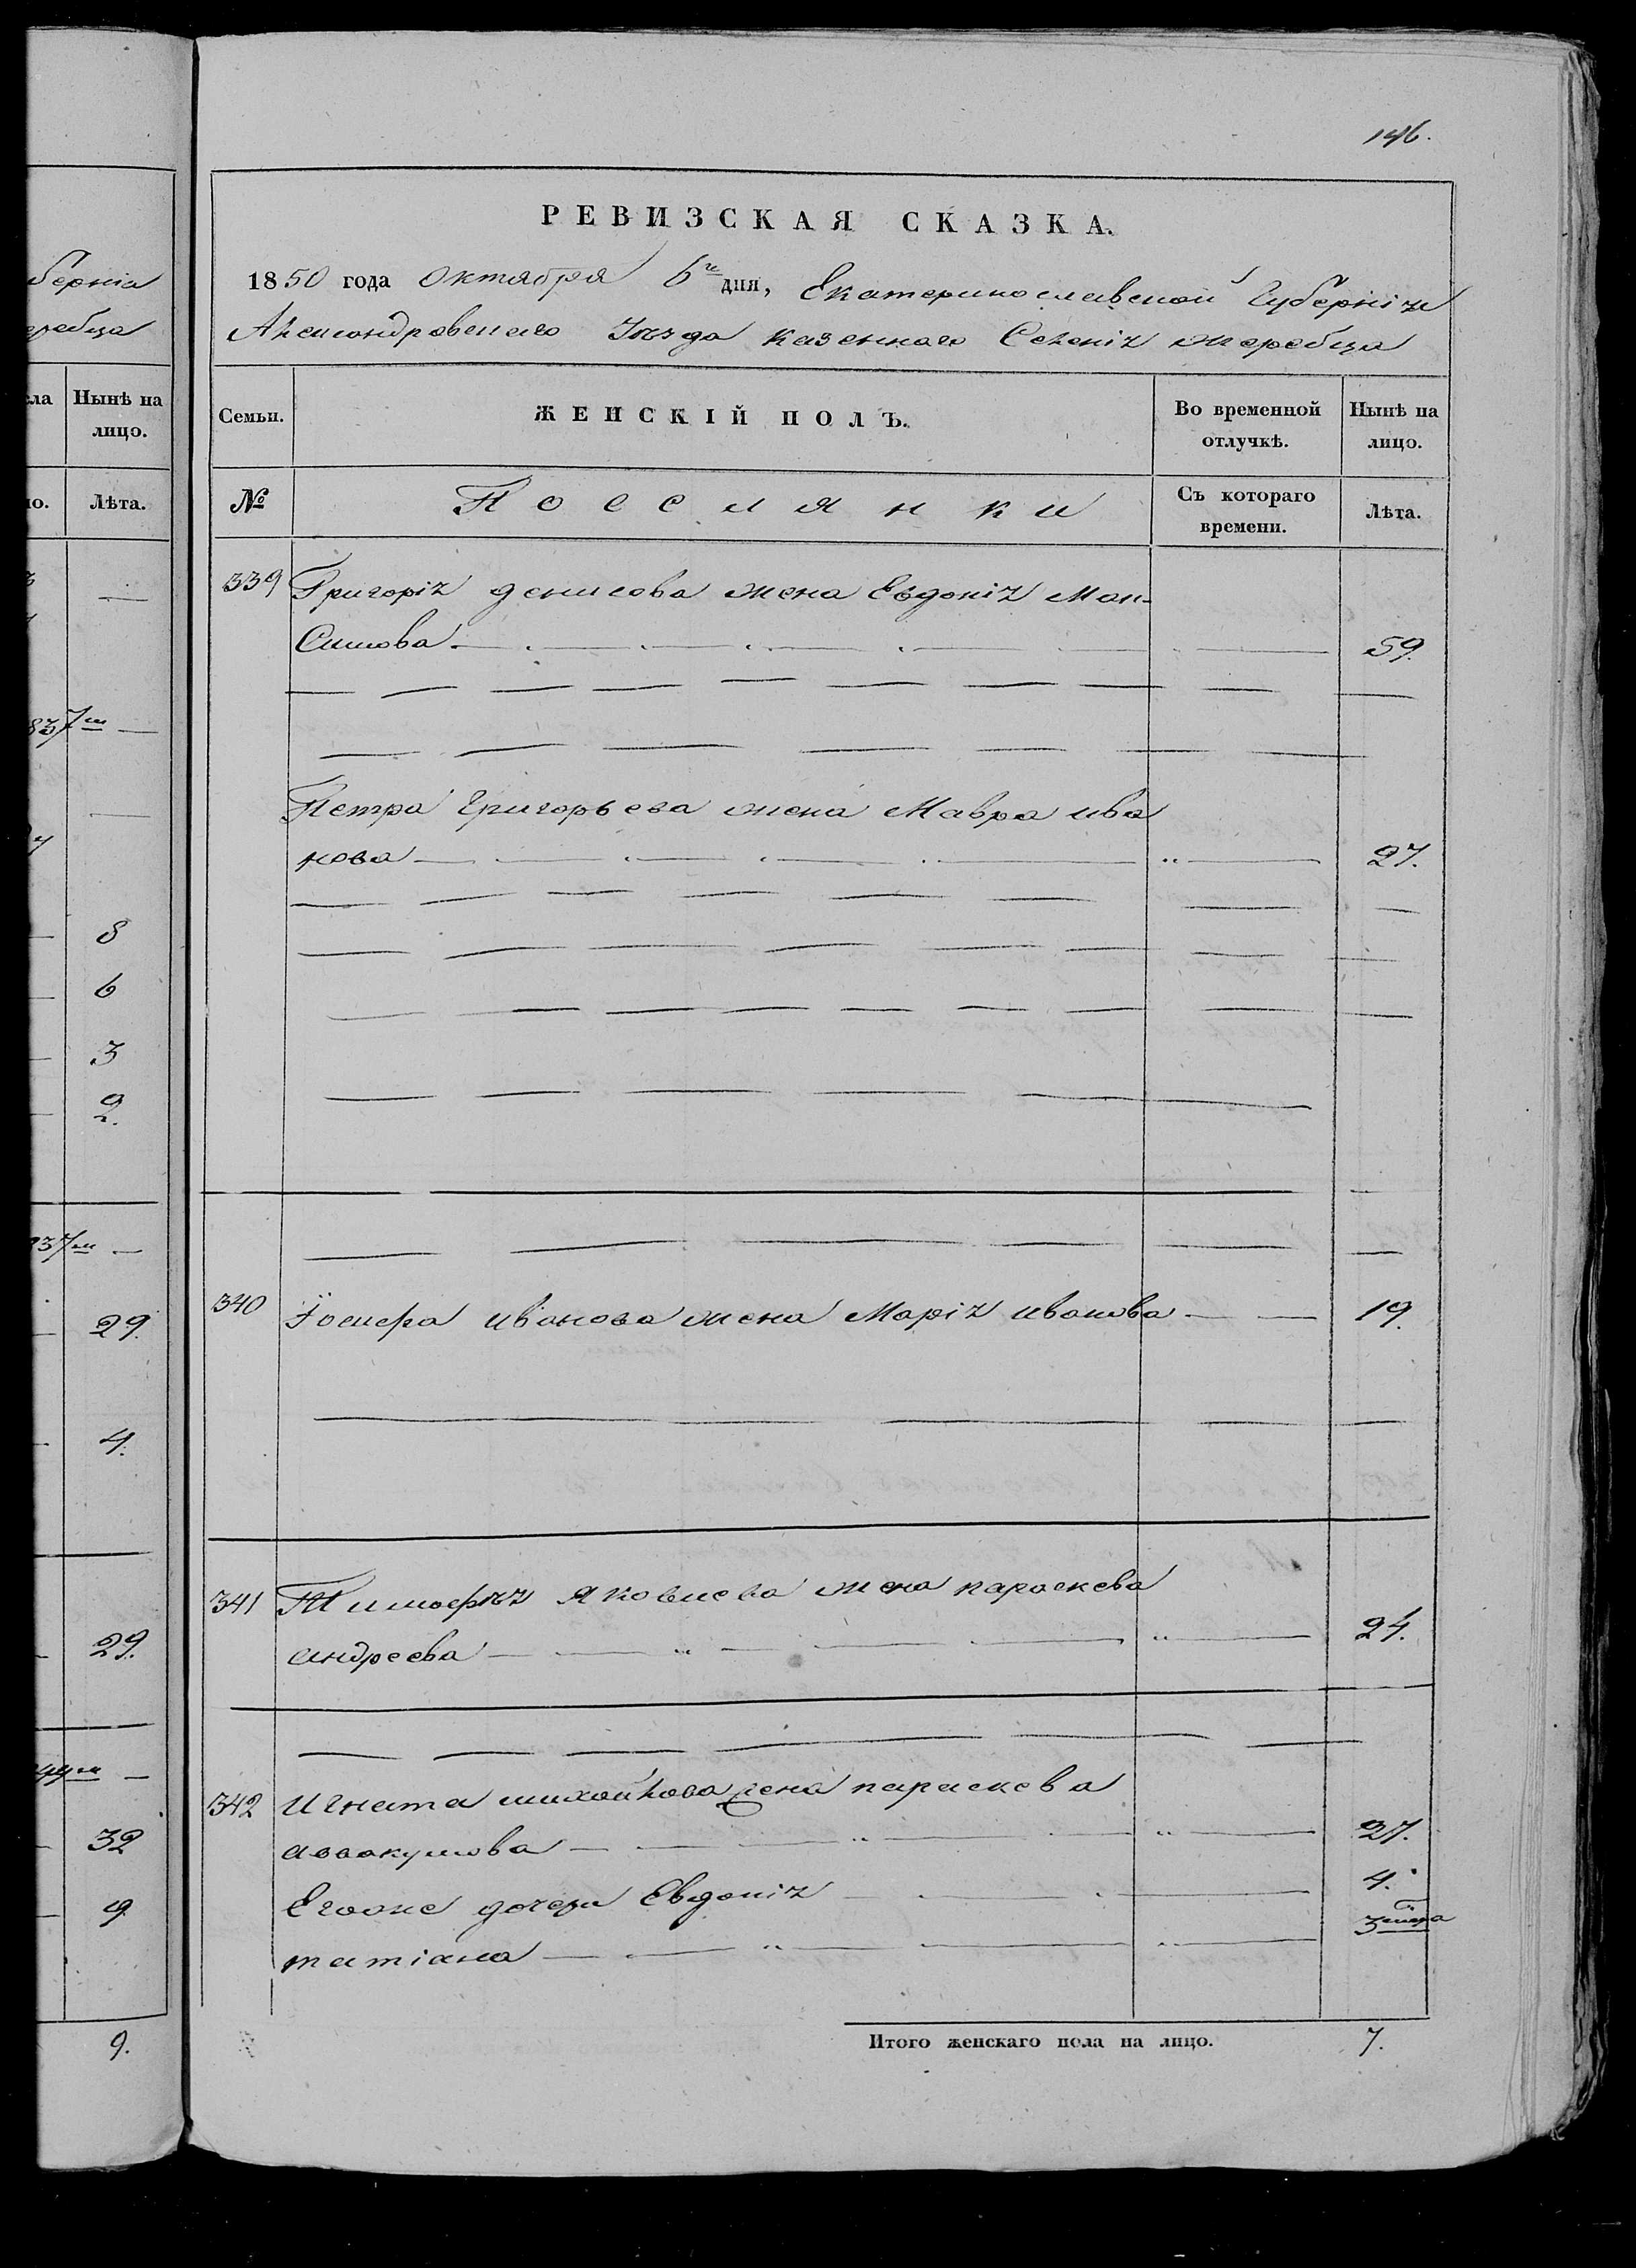 берніа
еребца
ла Нынѣ на
лицо.
но. Лѣта.
837м
8
6
3
2.
837м
29.
4.
29.
32
9
9.
146.
РЕВИЗСКАЯ СКАЗКА.
1850 года Октября 6го дня, Екатеринославской Губерніи
Александровскаго Уѣзда казеннаго Селенія жеребца
Семьи. ЖЕНСКІЙ ПОЛЪ. Во временной Нынѣ на
отлучкѣ. лицо.
№ Поселянки Съ котораго Лѣта.
времени.
339 Григорія денисова жена Евдокія Мак-
Симова 59.
Петра Григорьева жена Мавра ива
нова 27.
340 Іосифа иванова жена Марія иванова 19.
341 Тимофѣя яковлева жена параскева
андреева 24.
342 Игната михайлова жена параскева
аввакумова 27.
Егоже дочери Евдокія 4.
татіана 3 мѣсяца
Итого женскаго пола на лицо. 7.